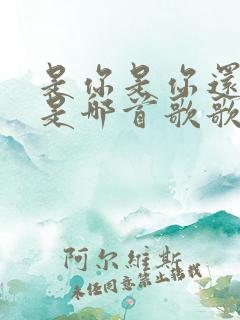 是你是你還
是那首歌歌
阿尔維斯
未经同意禁止转载